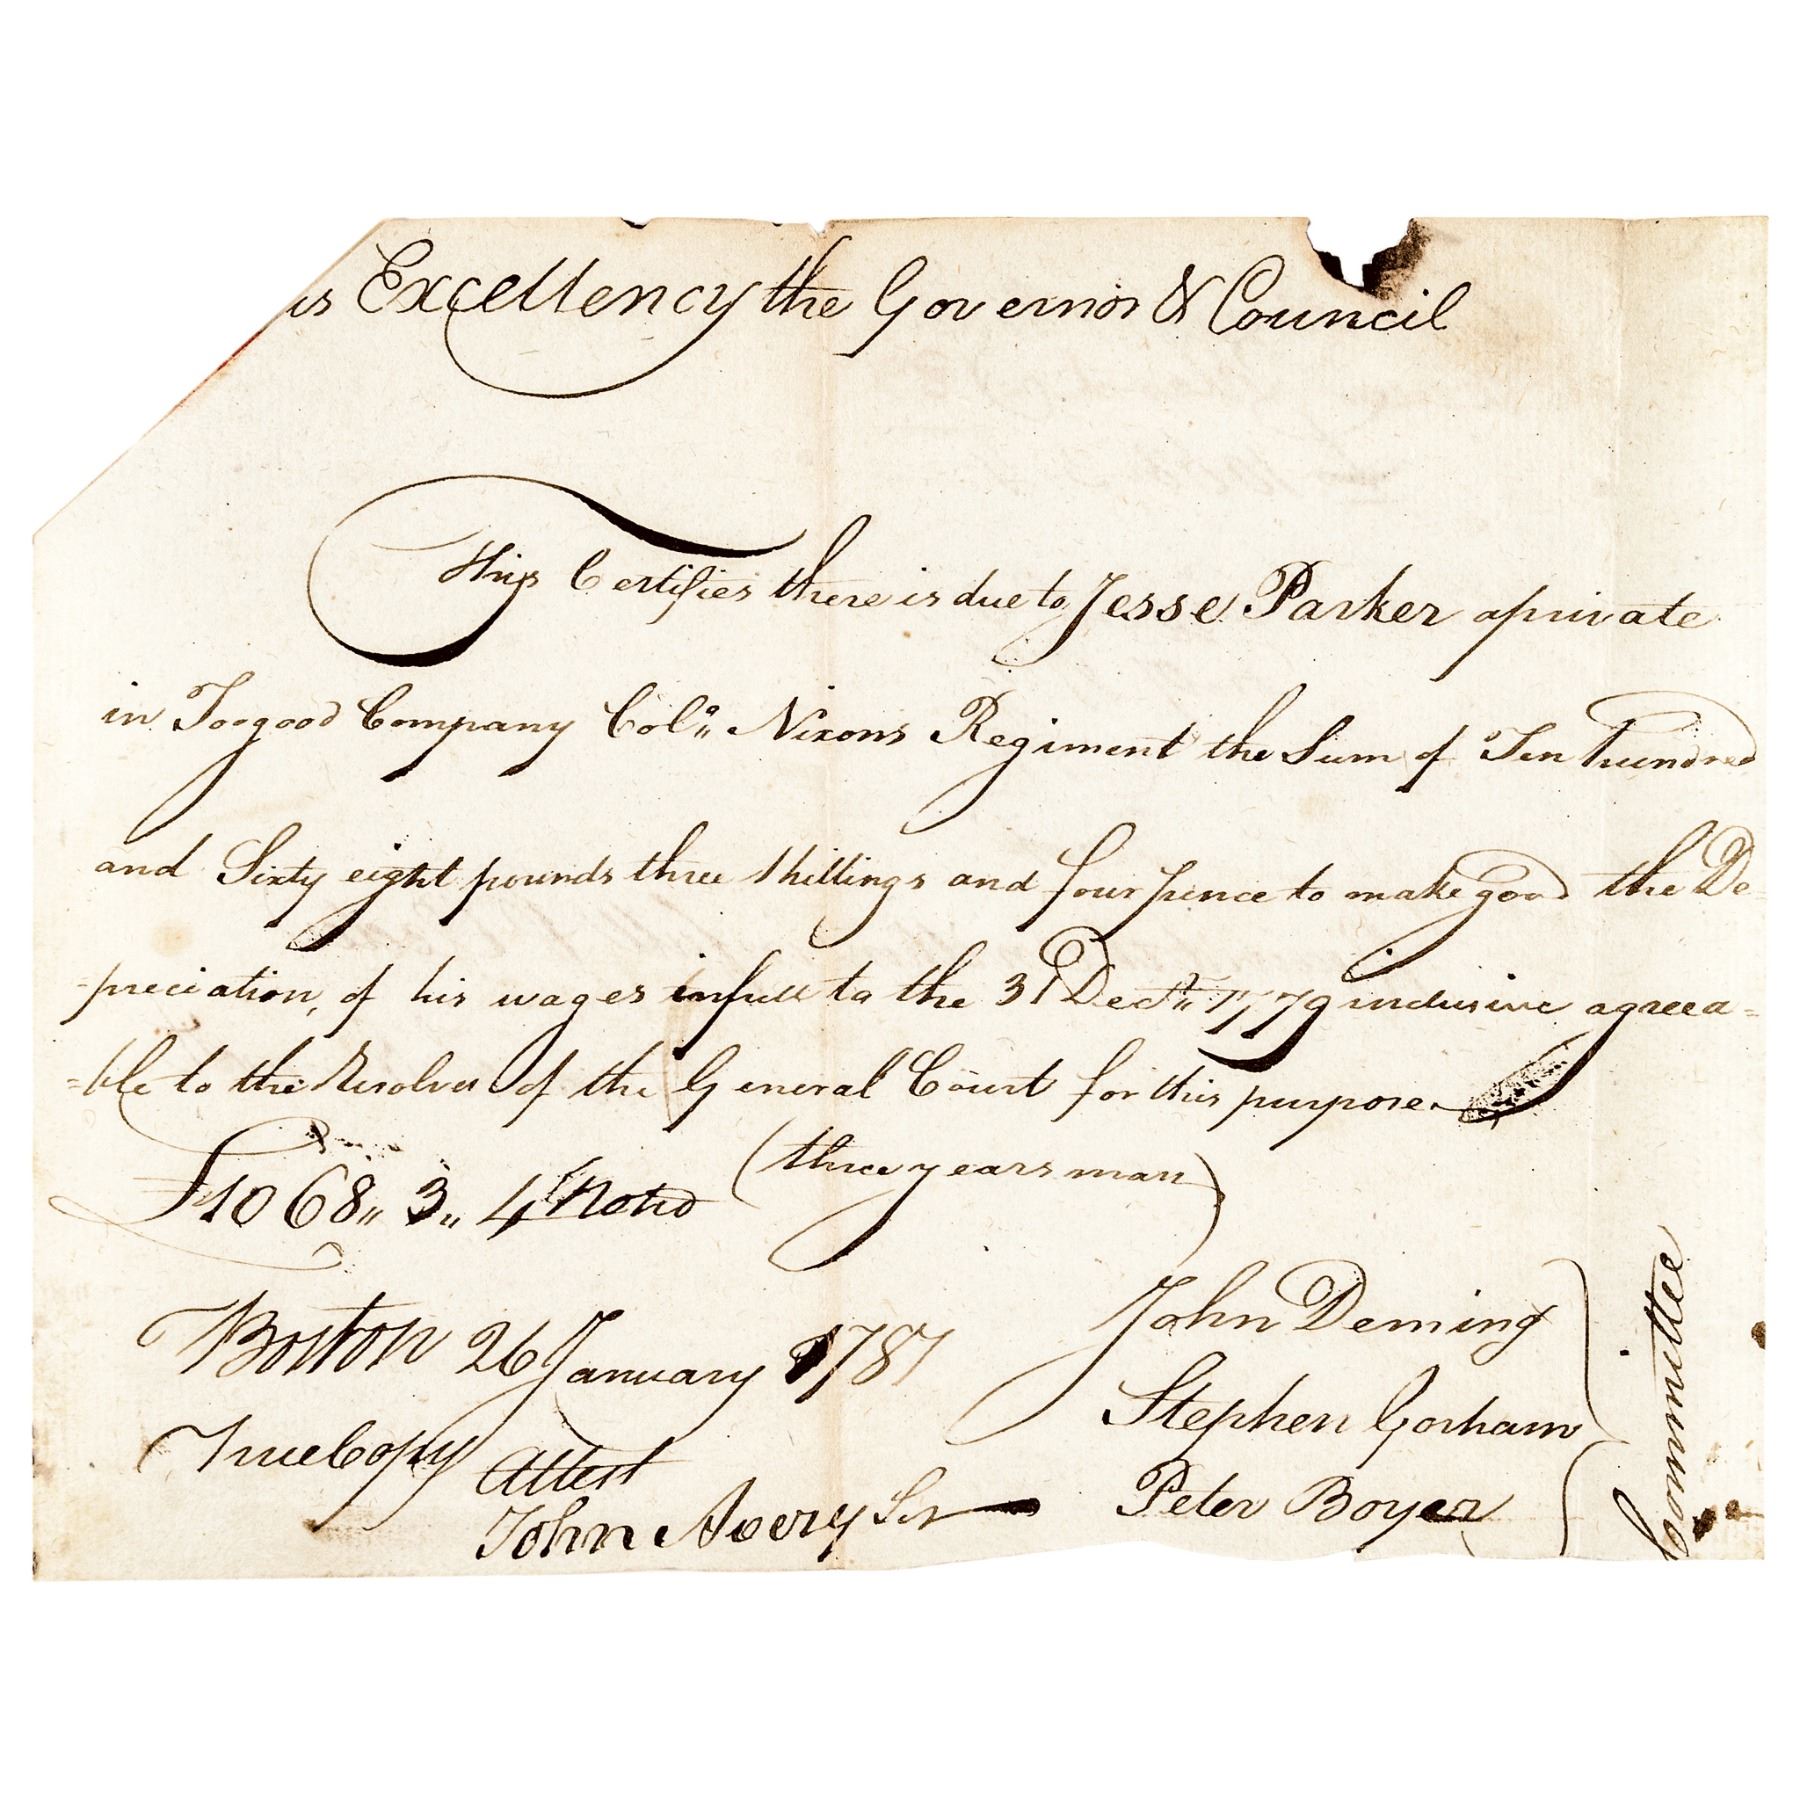 is Excellency the Governor & Council
This Certifies there is due to Jesse Parker a private
in Toogood Company Colo. Nixons Regiment the Sum of Ten hundred
and Sixty eight pounds three Shillings and four pence to make good the De-
=preciation, of his wages in full to the 31 Decr. 1779 inclusive agreea=
=ble to the Resolves of the General Court for this purpose.
£1068,, 3,, 4 (three years man)
Boston 26 January 1781
John Deming
Stephen Gorham
Peter Boyer
Committee
True Copy
Attest
John Avery Sr